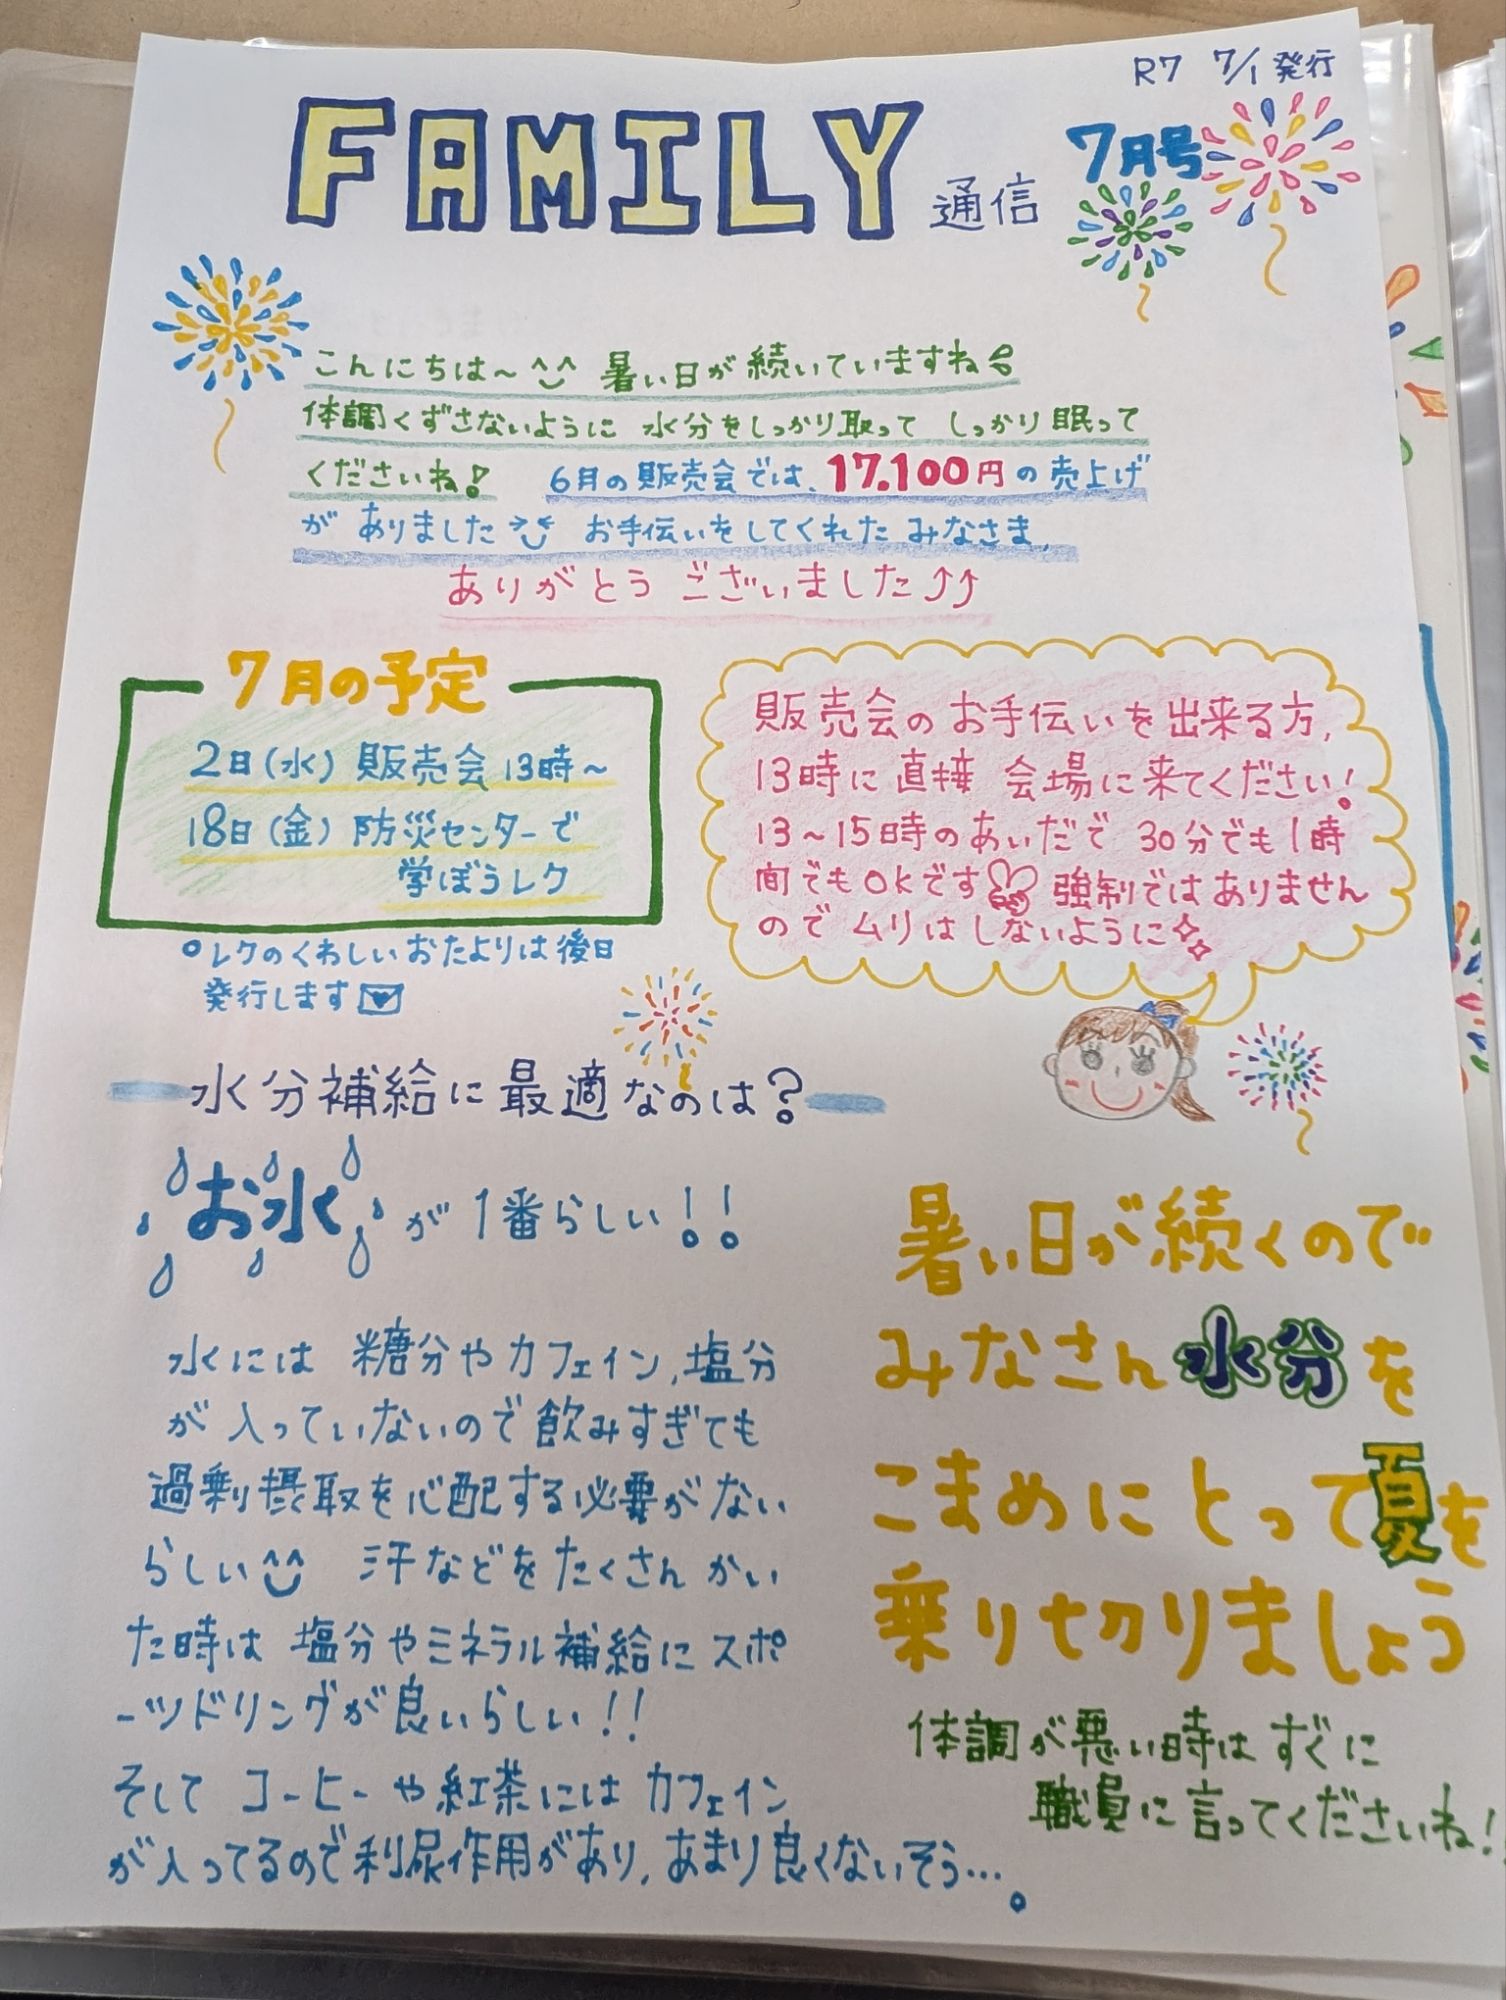 R7 7/1 発行
FAMILY 通信
7月号
こんにちは～ 暑い日が続いていますね
体調くずさないように 水分をしっかり取って しっかり眠って
くださいね! 6月の販売会では、17.100円の売上げ
が ありました お手伝いをしてくれた みなさま、
ありがとう ございました⤴⤴
7月の予定
2日(水) 販売会 13時～
18日(金) 防災センターで
学ぼうレク
○レクのくわしいおたよりは後日
発行します
販売会のお手伝いを出来る方、
13時に直接 会場に来てください!
13～15時のあいだで 30分でも1時
間でもOKです 強制ではありません
ので ムリはしないように
水分補給に最適なのは?
お水が1番らしい!!
水には 糖分やカフェイン、塩分
が入っていないので飲みすぎても
過剰摂取を心配する必要がない
らしい 汗などをたくさん かい
た時は 塩分やミネラル補給に スポ
ーツドリングが良いらしい!!
そして コーヒーや紅茶には カフェイン
が入ってるので利尿作用があり、あまり良くないそう…。
暑い日が続くので
みなさん水分を
こまめにとって夏を
乗り切りましょう
体調が悪い時は すぐに
職員に言ってくださいね!